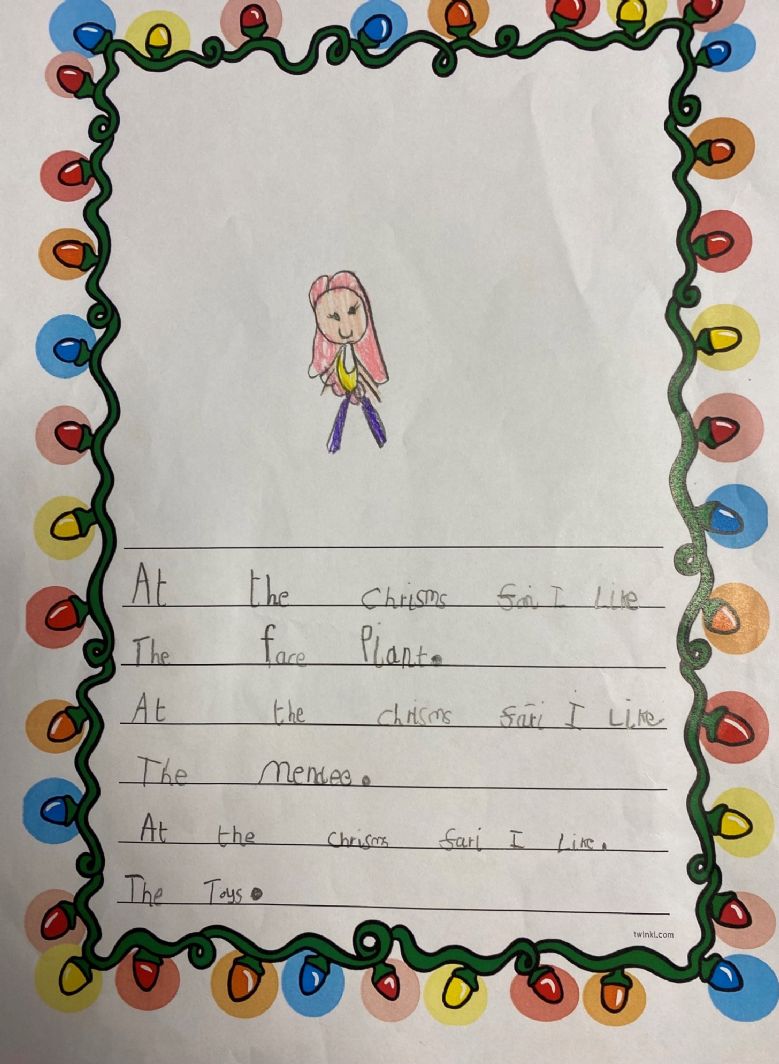 At the chrisms fari I Like
The face Plant.
At the chrisms fari I Like
The mendee.
At the chrisms fari I Like.
The Toys.
twinkl.com